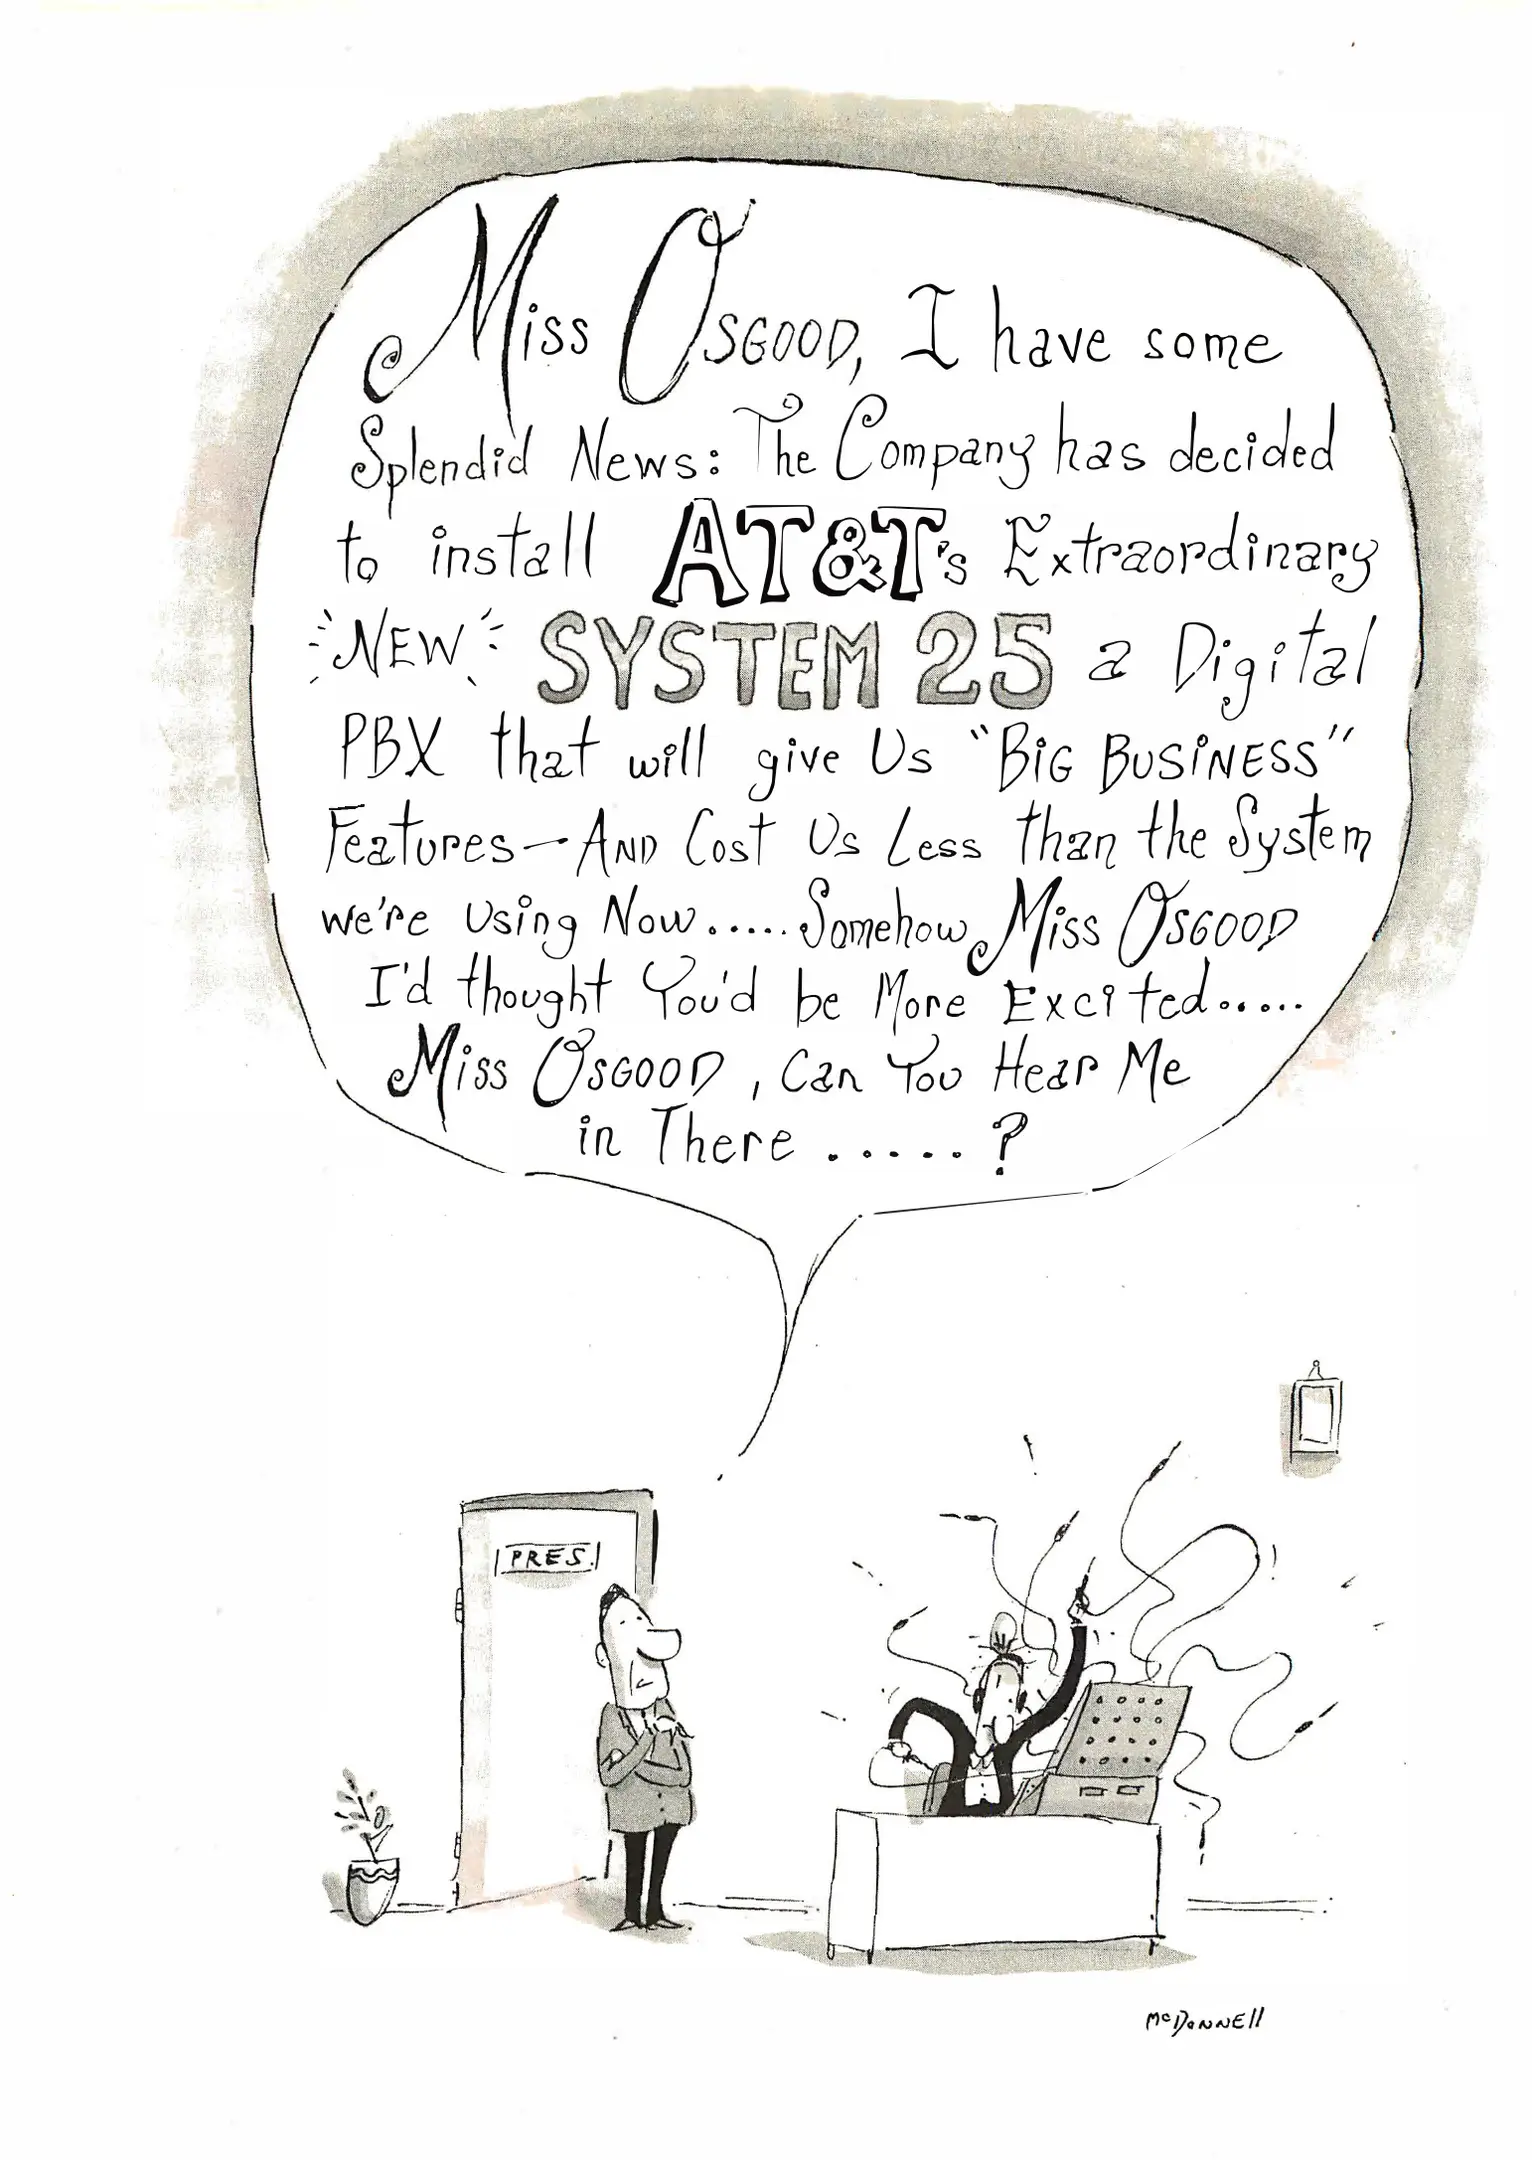 Miss Osgood, I have some
Splendid News: The Company has decided
to install AT&T's Extraordinary
NEW SYSTEM 25 a Digital
PBX that will give Us "BiG BUSiNESS"
Features—AND Cost Us Less than the System
we're Using Now..... Somehow Miss Osgood
I'd thought You'd be More Excited.....
Miss Osgood, Can You Hear Me
in There .....?
PRES.
McDonnell